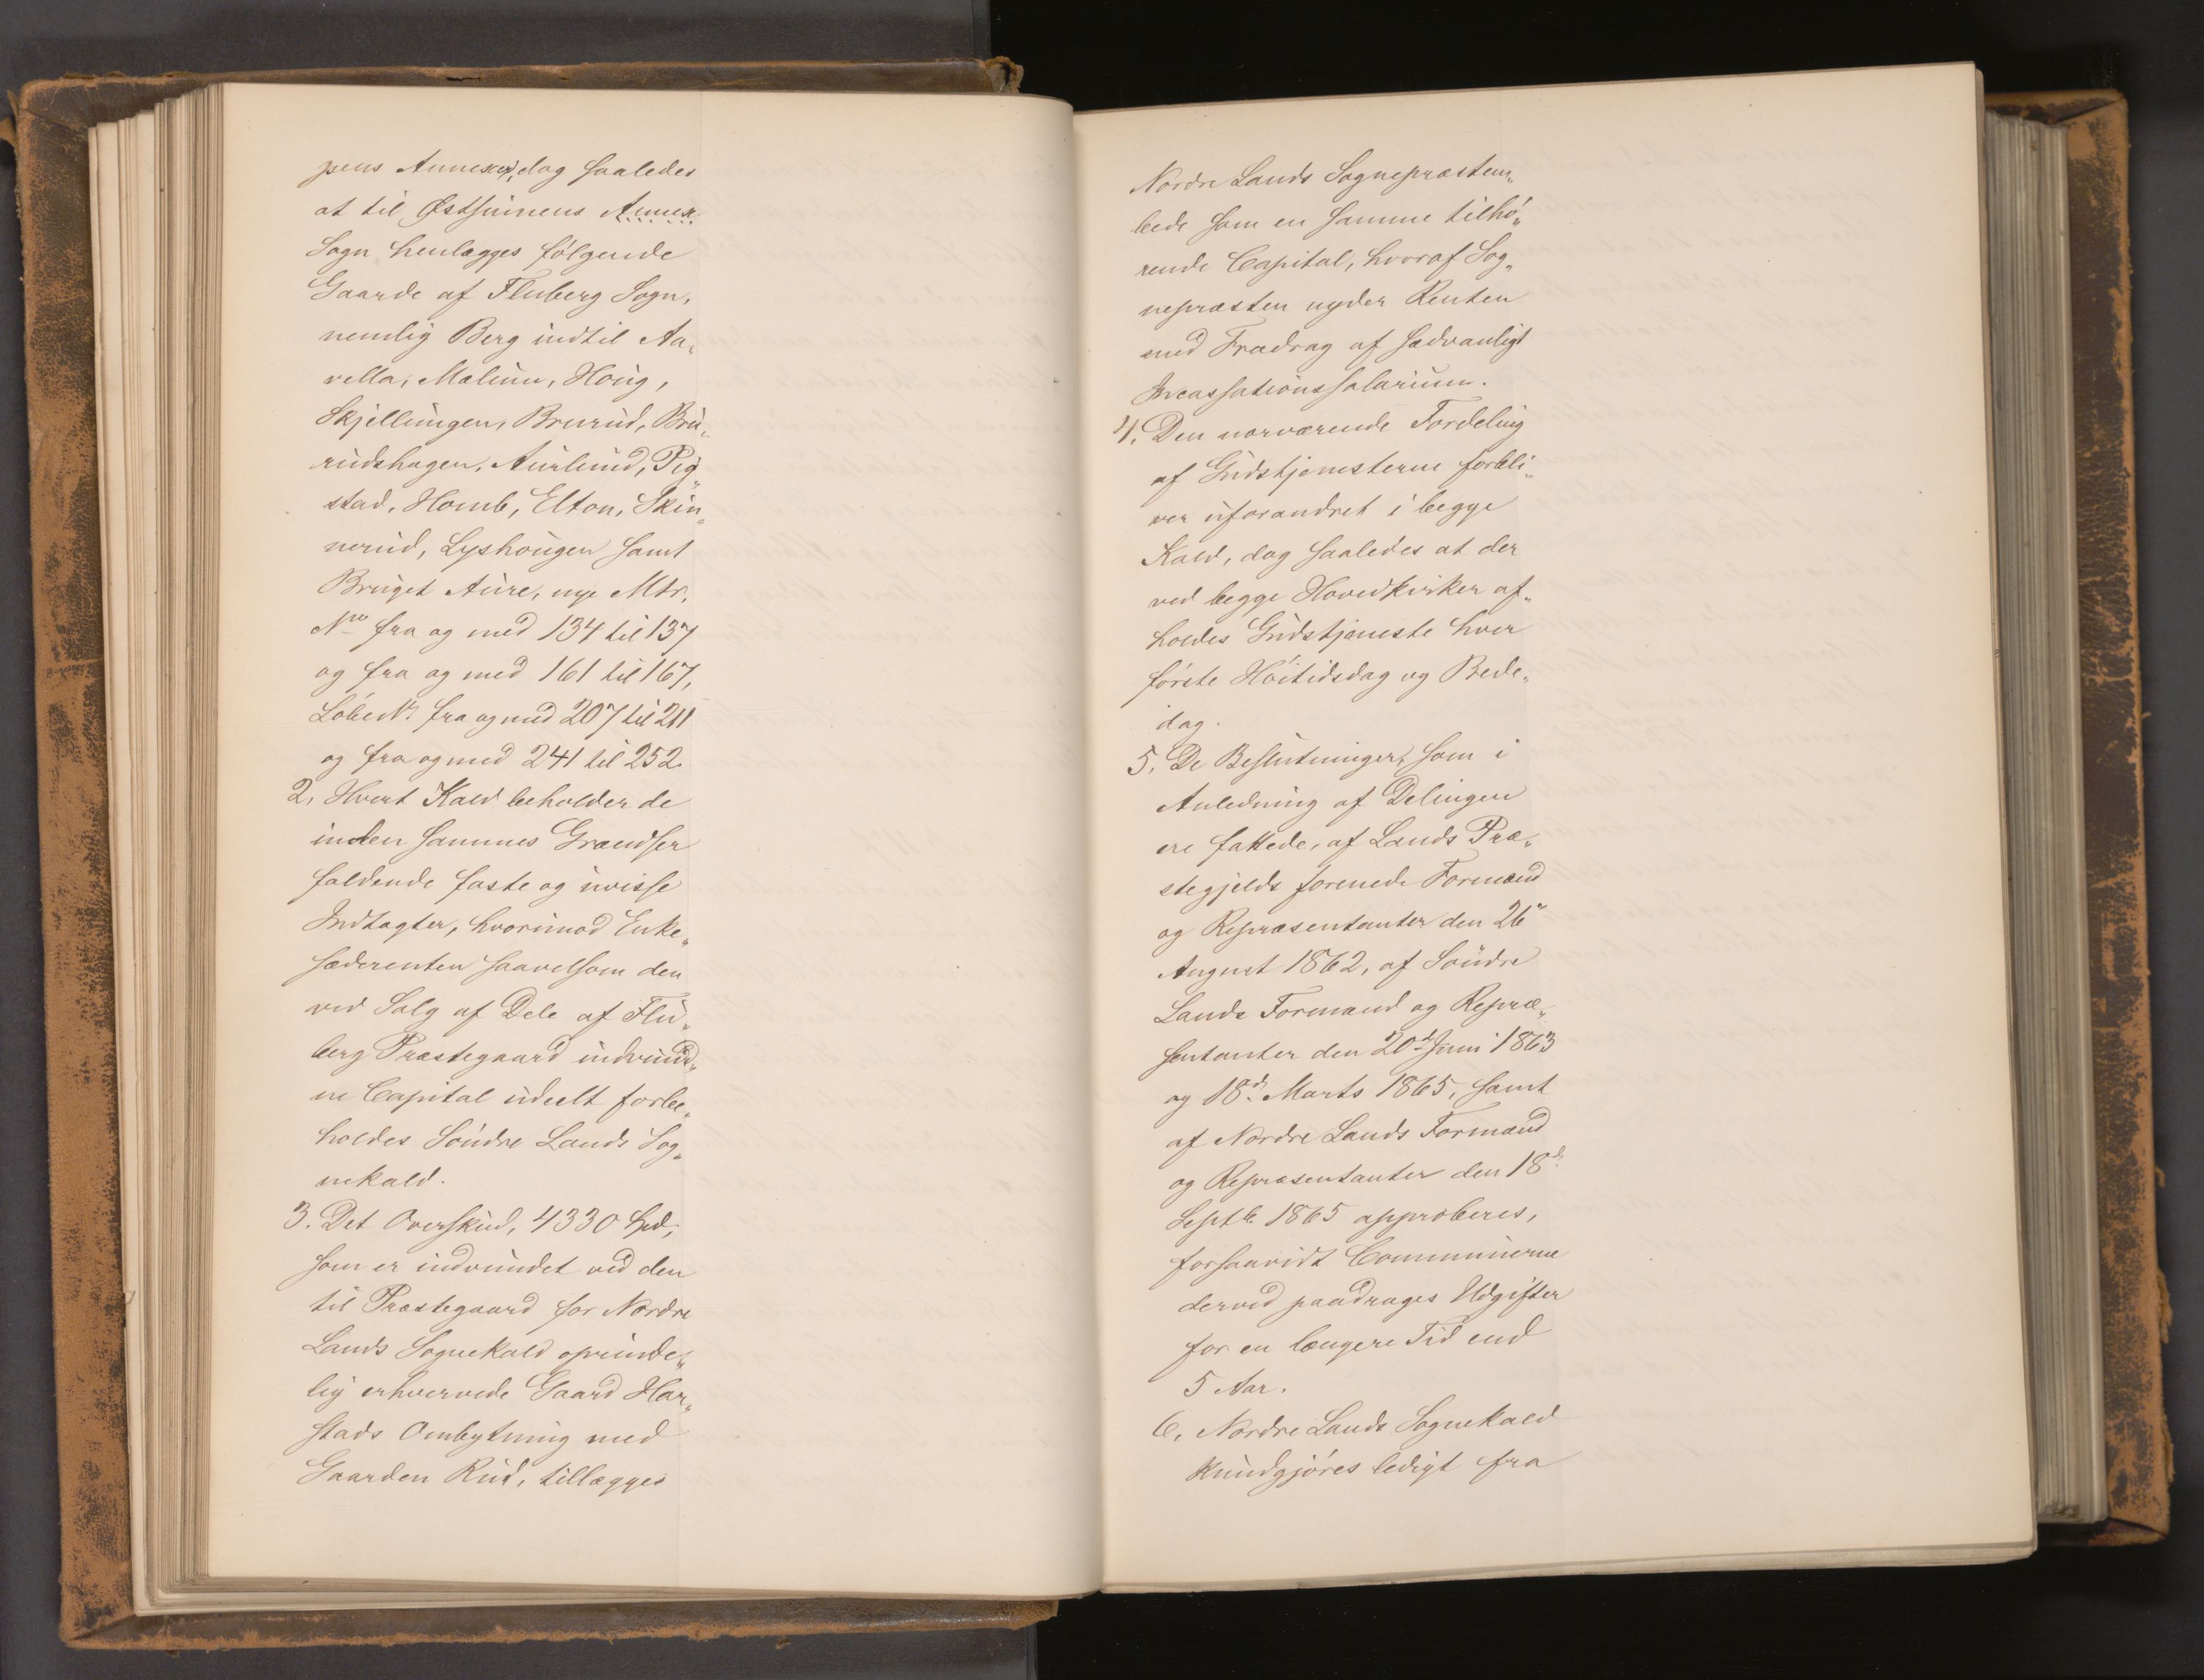 pens Annexer, dog saaledes
at til Østsinnens Annex
Sogn henlægges følgende
Gaarde af Fluberg Sogn,
nemlig Berg indtil Aa„
vella, Mælum, Houg,
Skjellingen, Brurud, Bru„
rudshagen, Aurlund, Pig„
stad, Homb, Elton, Skin„
nerud, Lyshougen samt
Bruget Aure, nye Mtr.
No fra og med 134 til 137
og fra og med 161 til 167,
Løbe No fra og med 207 til 211
og fra og med 241 til 252.
2, Hvert Kald beholder de
inden sammes Grændser
faldende faste og uvisse
Indtægter, hvorimod Enke„
sæderenten saavelsom den
ved Salg af Dele af Flu„
berg Præstegaard indvund„
ne Capital udeelt forbe„
holdes Søndre Lands Sog„
nekald.
3. Det Overskud, 4330 Spd,
som er indvundet ved den
til Præstegaard for Nordre
Lands Sognekald oprinde„
lig erhvervede Gaard Har„
stads Ombytning med
Gaarden Rud, tillægges
Nordre Lands Sognepræstem„
bede som en samme tilhø„
rende Capital, hvoraf Sog„
nepræsten nyder Renten
med Fradrag af sædvanligt
Incassationssalarium.
4. Den nærværende Fordeling
af Gudstjenesterne forbli„
ver uforandret i begge
Kald, dog saaledes at der
ved begge Hovedkirker af„
holdes Gudstjeneste hver
første Høitidsdag og Bede„
dag.
5, De Beslutninger, som i
Anledning af Delingen
ere fattede, af Lands Præ„
stegjelds forenede Formænd
og Repræsentanter den 26
August 1862, af Søndre
Lands Formænd og Repræ„
sentanter den 20d Juni 1863
og 18d. Marts 1865, samt
af Nordre Lands Formænd
og Repræsentanter den 18d.
Septb. 1865 approberes,
forsaavidt Communerne
derved paadrages Udgifter
for en længere Tid end
5 Aar.
6, Nordre Lands Sognekald
kundgjøres ledigt fra